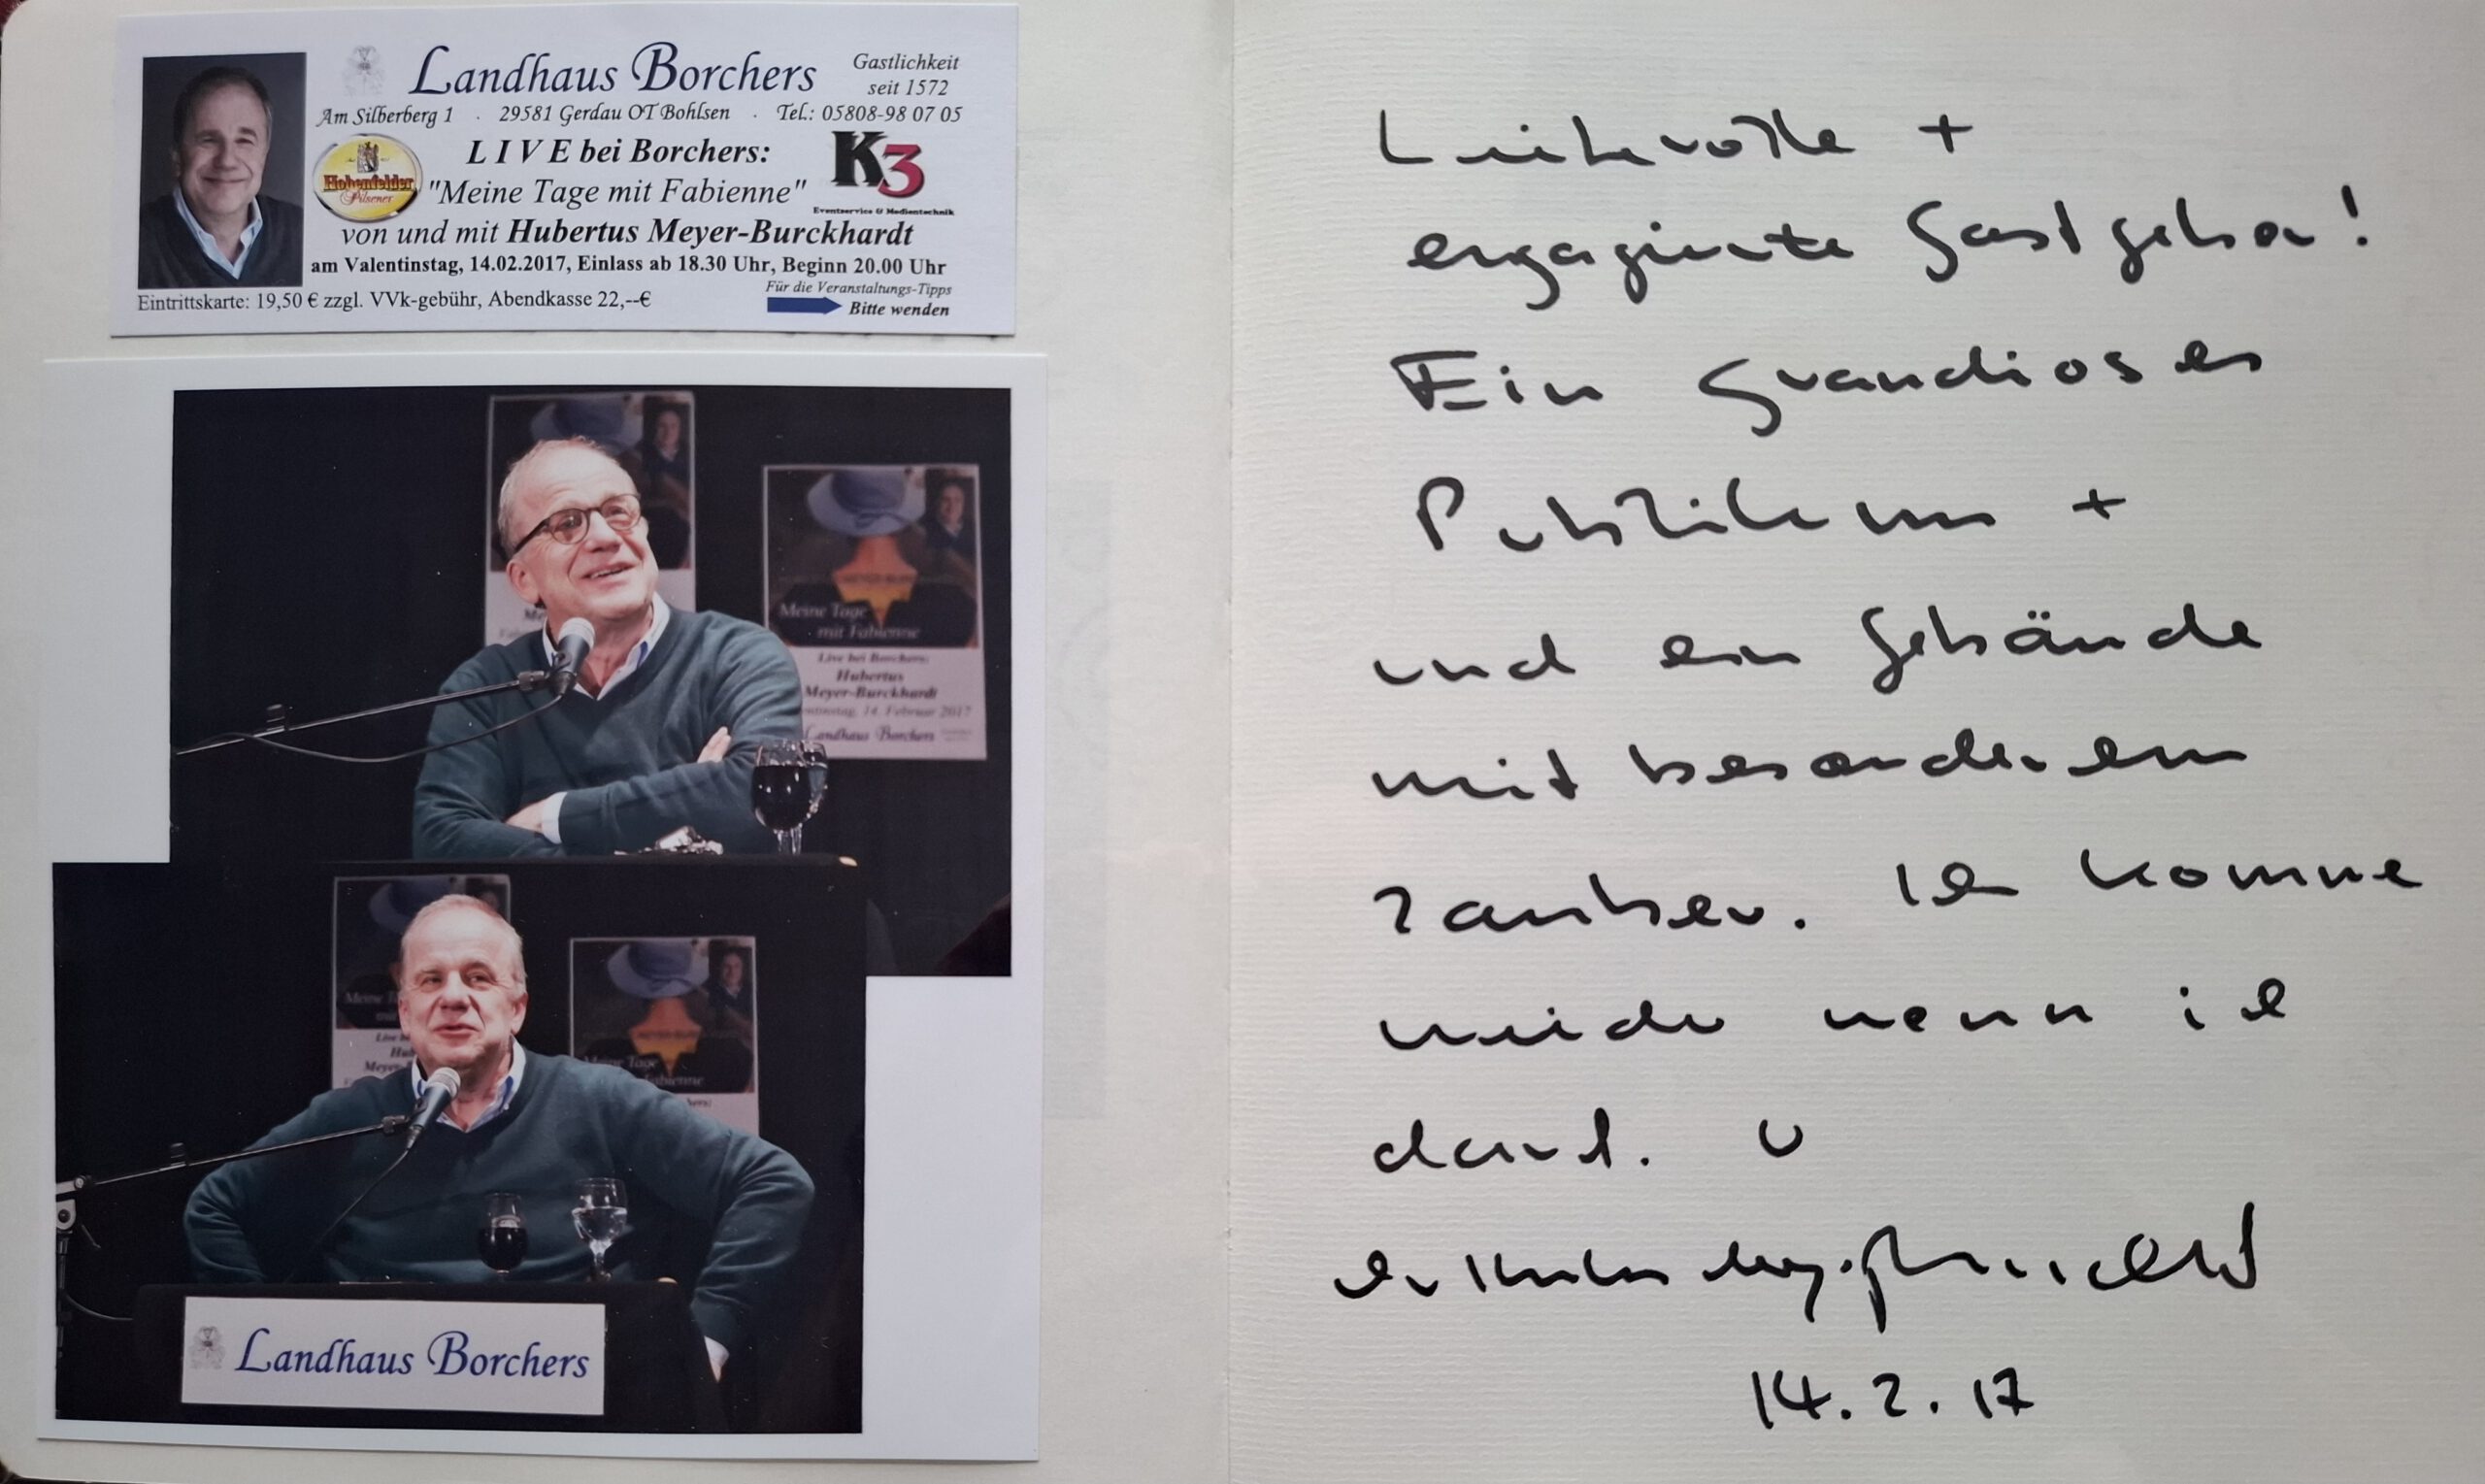 Landhaus Borchers
Gastlichkeit
seit 1572
Am Silberberg 1 . 29581 Gerdau OT Bohlsen . Tel.: 05808-98 07 05
LIVE bei Borchers:
Hohenfelder
Pilsener
K3
Eventservice & Medientechnik
"Meine Tage mit Fabienne"
von und mit Hubertus Meyer-Burckhardt
am Valentinstag, 14.02.2017, Einlass ab 18.30 Uhr, Beginn 20.00 Uhr
Eintrittskarte: 19,50 € zzgl. VVk-gebühr, Abendkasse 22,--€
Für die Veranstaltungs-Tipps
Bitte wenden
Meine Tage
mit Fabienne
Live bei Borchers:
Hubertus
Meyer-Burckhardt
14. Februar 2017
Landhaus Borchers
Meine
Live
Hub
Meyer
Meine Tage
Fabienne
Landhaus Borchers
+
engagierte Gastgeber!
Ein grandioses
Publikum +
und ein Gebäude
mit besonderem
Zauber. Ich komme
wieder wenn ich
darf.
14.2.17